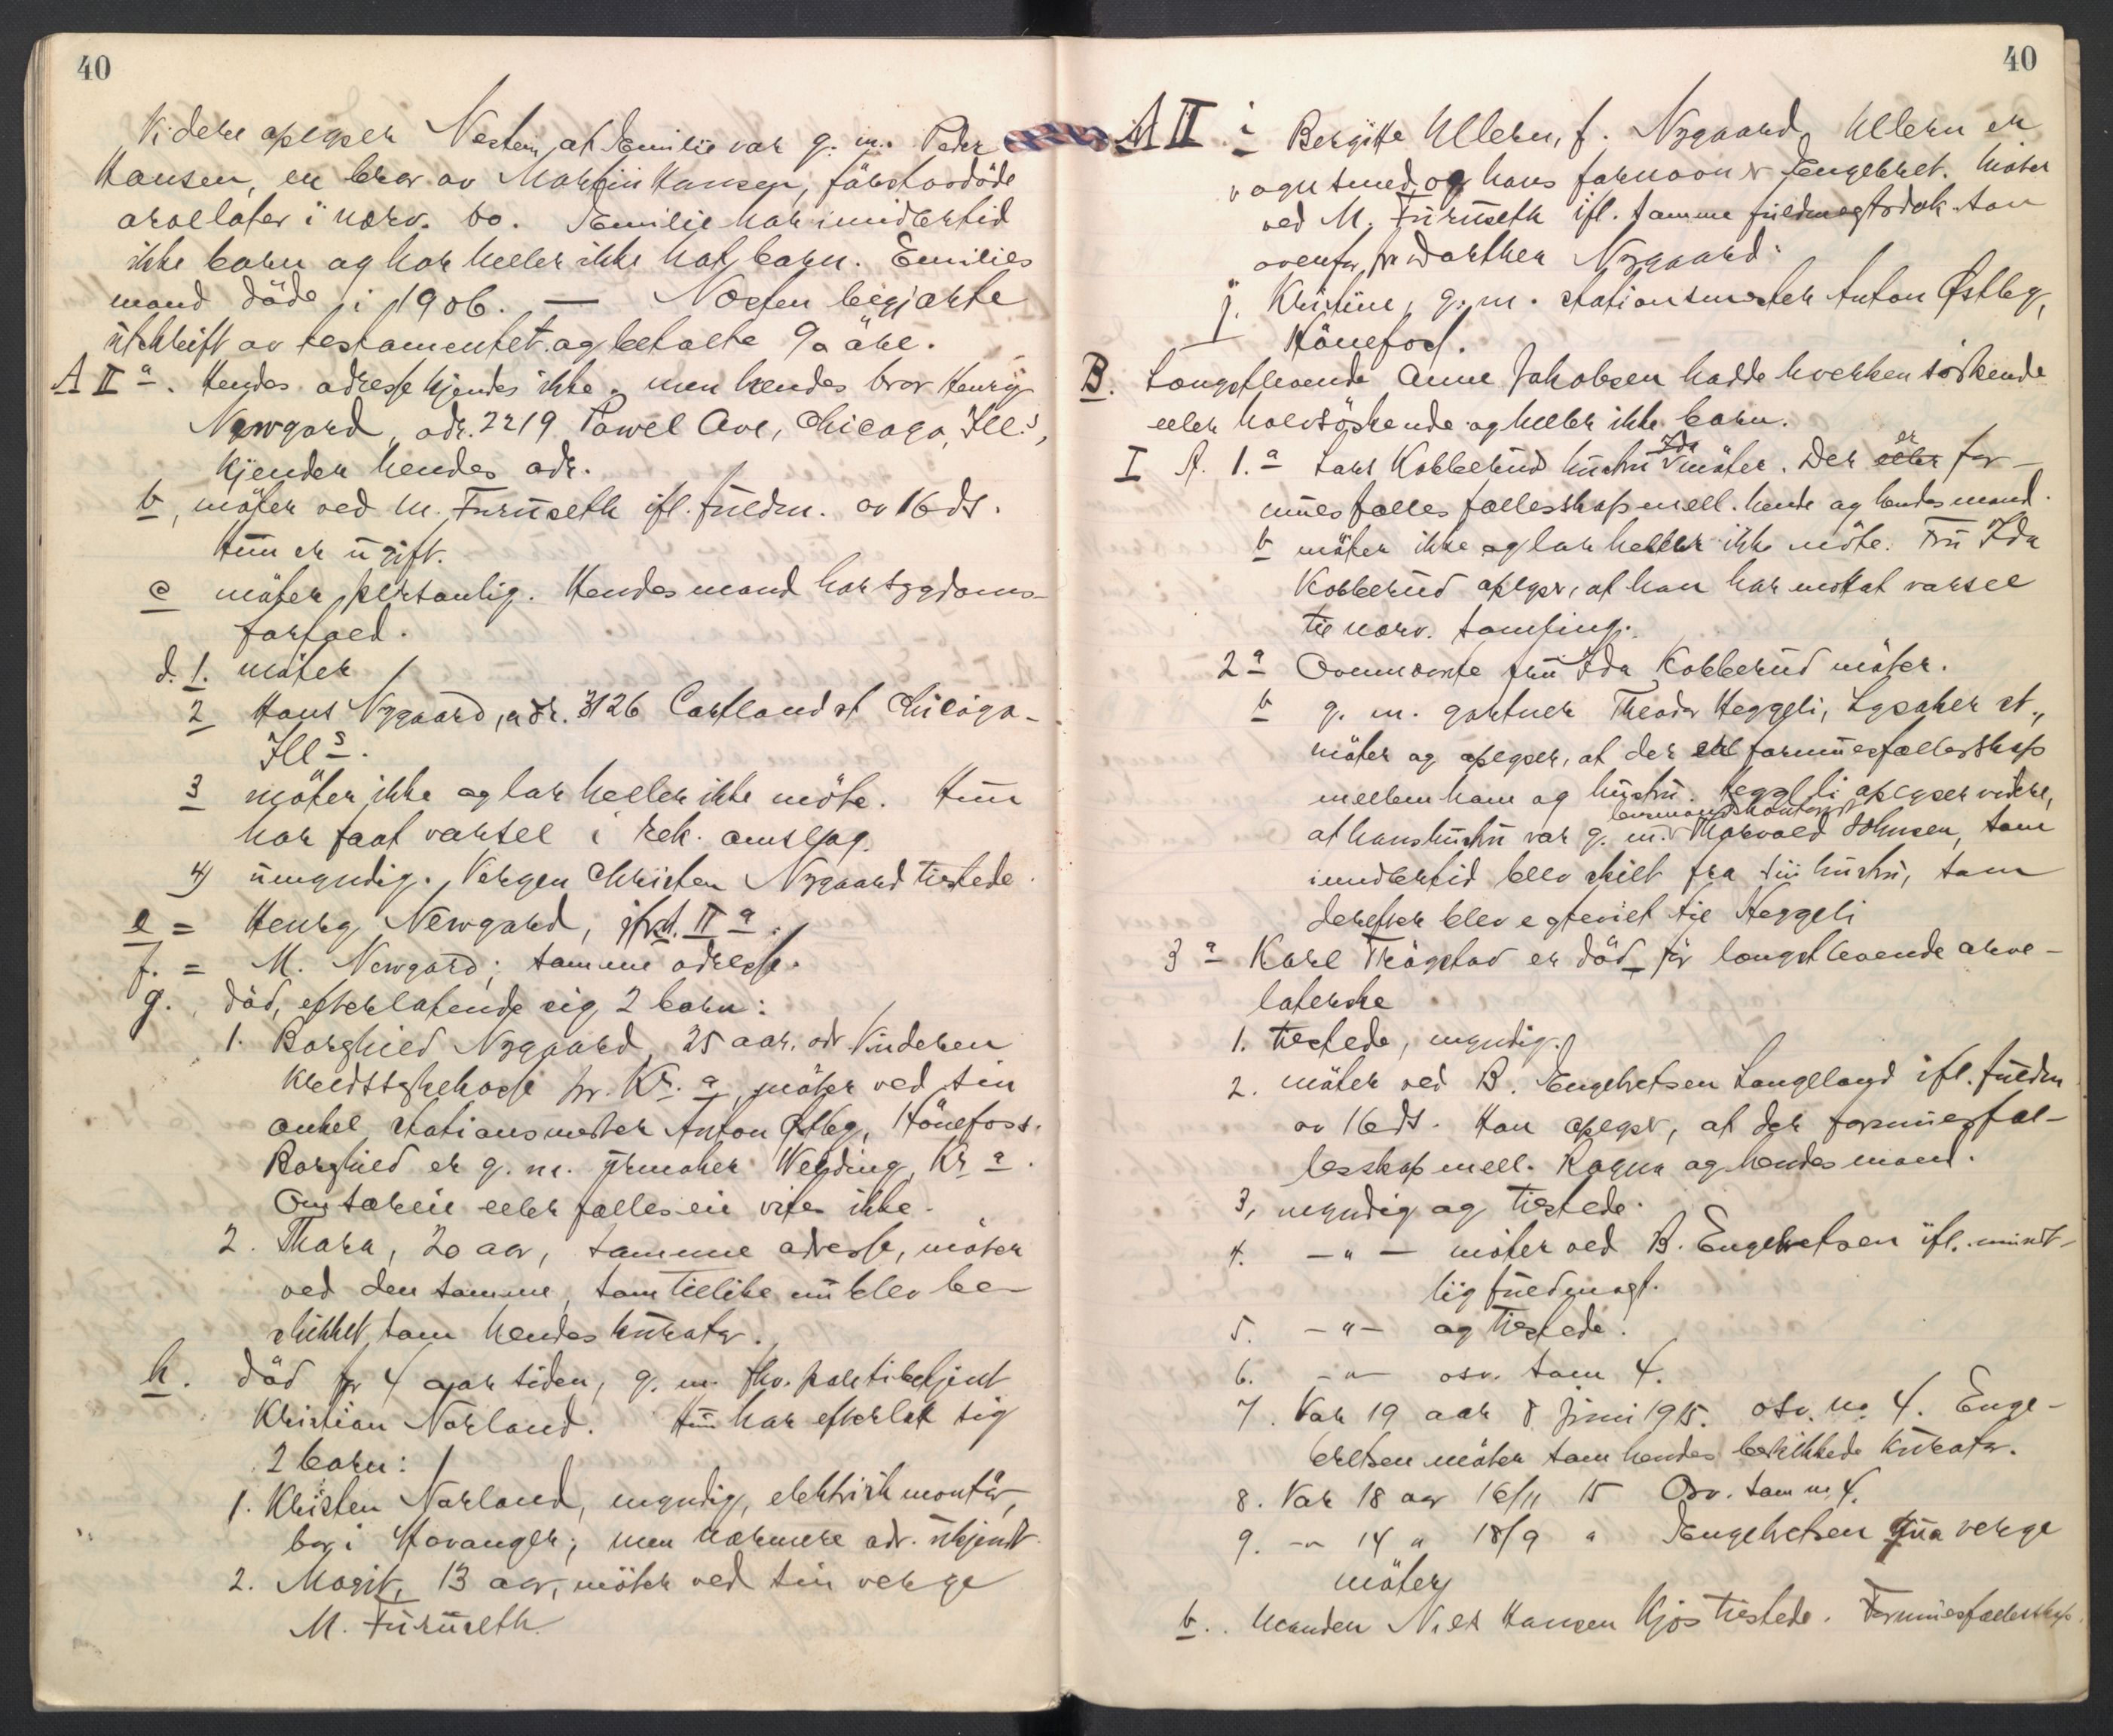 40
Videre oplyser Nesteim, at Emilie var g. m. Peder
Hansen, en bror av Martin Hansen, førstavdøde
arvelater i nærv. bo. Emilie har imidlertid
ikke barn og har heller ikke hat barn. Emilies
mand døde i 1906. — begjærte
utskrift av testamentet og betalte 90 øre.
A II a. Hendes adresse kjendes ikke, men hendes bror Henry
Newgard, adr. 2219 Powel Ave, Chicago, Ill.s,
kjender hendes adr.
b, møter ved M. Furuseth ifl. fuldm. av 16 ds.
Hun er ugift.
c møter personlig. Hendes mand har sygdoms-
forfald.
d. 1. møter
2 Hans Nygaard, adr. 3126 Cortland st Chicago-
Ills.
3 møter ikke og lar heller ikke møte. Hun
har faat varsel i rek. omslag.
4) umyndig. Vergen Christen Nygaard tilstede.
e = Henry Newgard, jfr. II a.
f. = M. Newgard; samme adresse.
g. død, efterlatende sig 2 barn:
1. Borghild Nygaard, 25 aar. adr Vinderen
Kredssykehus pr. Kr.a, møter ved sin
onkel stationsmester Anton Østbg, Hönefoss.
Borghild er g. m. urmaker Weyding, Kra.
Om særeie eller fælleseie vites ikke.
2. Thora, 20 aar, samme adresse, møter
ved den samme, som tillike nu blev be-
skikket som hendes kurator.
h. død for 4 aar siden, g. m. fhv. politibetjent
Kristian Norland. Hun har efterlatt sig
2 barn:
1. Kristen Norland, myndig, elektrisk montør,
bor i Stavanger; men nærmere adr. ukjendt.
2. Magit, 13 aar, møter ved sin verge
M. Furuseth.
40
A II i Bergitte Ullern, f. Nygaard, Ullern er
vognsmed og hans fornavn er Engebret. Møter
ved M. Furuseth ifl. samme fuldmagtsdok. som
ovenfor fru Dorthea Nygaard.
j. Kristine, g. m. stationsmester Anton Østbg,
Hönefos.
B. Længstlevende Anne Jakobsen hadde hverken søskende
eller halvsøskende og heller ikke barn.
I A. 1. a Lars Kobberud hustru Ida møter. Der eller er for-
mues fælles fællesskap mell. hende og hendes mand.
b møter ikke og lar heller ikke møte. Fru Ida
Kobberud oplyser, at han har mottat varsel
til nærv. samling.
2 a Ovennævnte fru Ida Kobberud møter.
b g. m. gartner Theodor Heggeli, Lysaker st.,
møter og oplyser, at der er formuesfællesskap
mellem ham og hustru. Heggeli oplyser videre,
at hans hustru var g. m. lensmandskontorist Thorvald Johnsen, som
imidlertid blev skilt fra sin hustru, som
derefter blev egteviet til Heggeli
3 a Karl Trøgstad er død før længstlevende arve-
laterske
1. tilstede, myndig.
2. møter ved B. Engebretsen Langeland ifl. fuldm
av 16 ds. Han oplyser, at der formuesfæl-
lesskap mell. Ragna og hendes mand.
3, myndig og tilstede.
4. —"— møter ved B. Engebretsen ifl. mundt-
lig fuldmagt.
5. —"— og tilstede.
6. —"— osv. som 4.
7. Var 19 aar 8 juni 1915. osv. no 4. Enge-
bretsen møter som hendes beskikkede kurator.
8. Var 18 aar 16/11 15 Osv. som no 4.
9. —"— 14 " 18/9 " Engebretsen qua verge
møter
b. Manden Nils Hansen Kjos tilstede. Formuesfællesskap.